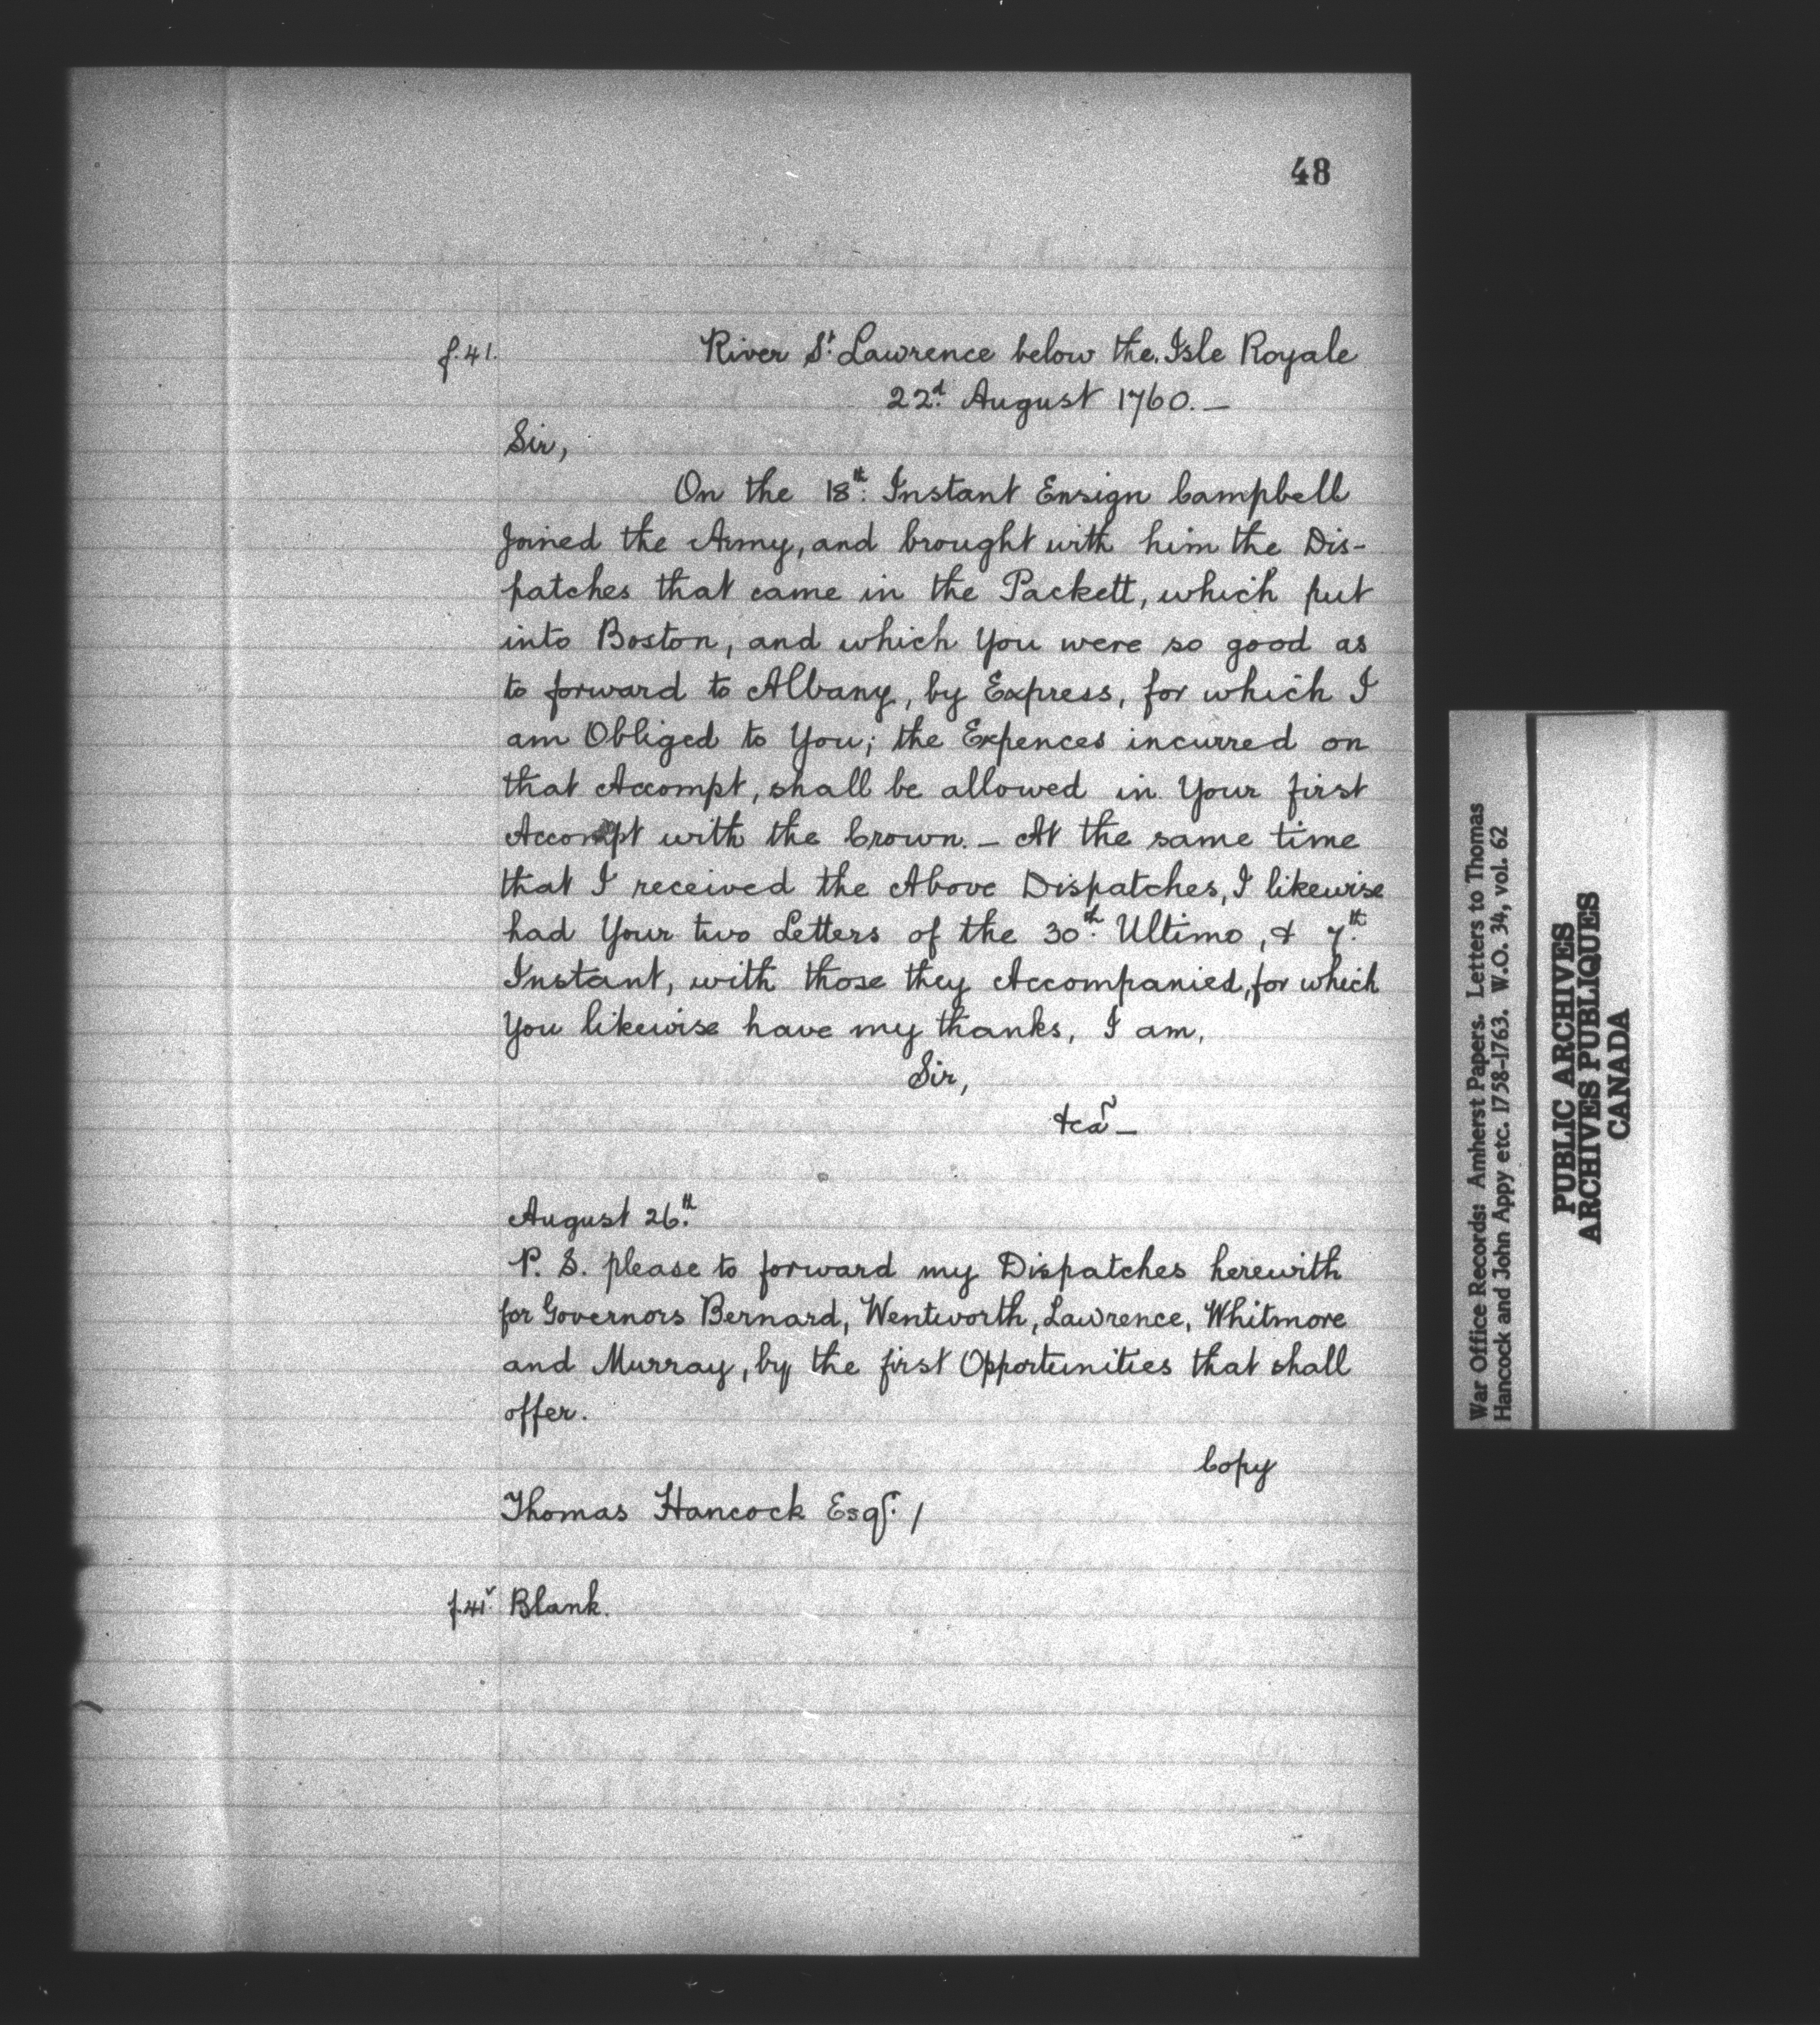 48
f.41. River St. Lawrence below the Isle Royale
22d. August 1760.—
Sir,
On the 18th. Instant Ensign Campbell
Joined the Army, and brought with him the Dis-
patches that came in the Packett, which put
into Boston, and which You were so good as
to forward to Albany, by Express, for which I
am Obliged to You; the Expences incurred on
that Accompt, shall be allowed in Your first
Accompt with the Crown.— At the same time
that I received the Above Dispatches, I likewise
had Your two Letters of the 30th. Ultimo, & 7th.
Instant, with those they Accompanied, for which
You likewise have my thanks, I am,
Sir,
&ca—
August 26th.
P. S. please to forward my Dispatches herewith
for Governors Bernard, Wentworth, Lawrence, Whitmore
and Murray, by the first Opportunities that shall
offer.
Copy
Thomas Hancock Esqr. /
f.41v. Blank.
War Office Records: Amherst Papers. Letters to Thomas
Hancock and John Appy etc. 1758-1763. W.O. 34, vol. 62
PUBLIC ARCHIVES
ARCHIVES PUBLIQUES
CANADA